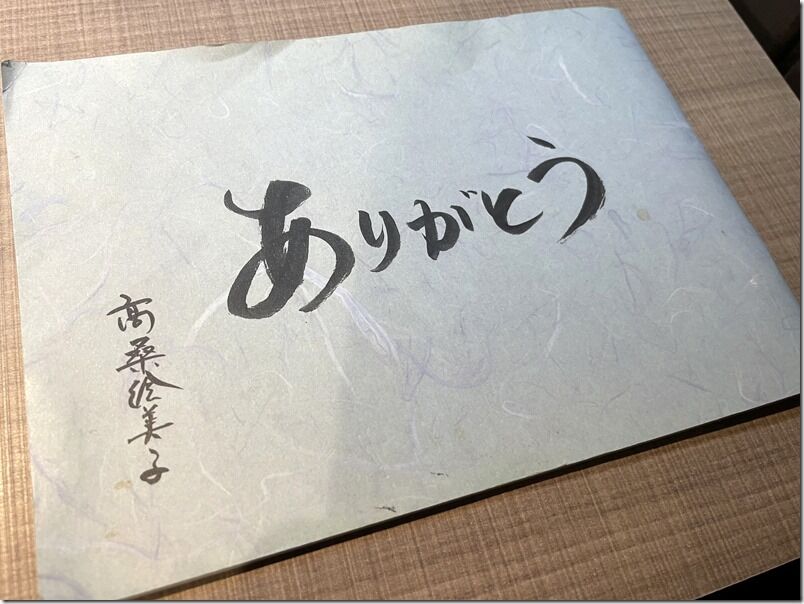 ありがとう
高桑絵美子